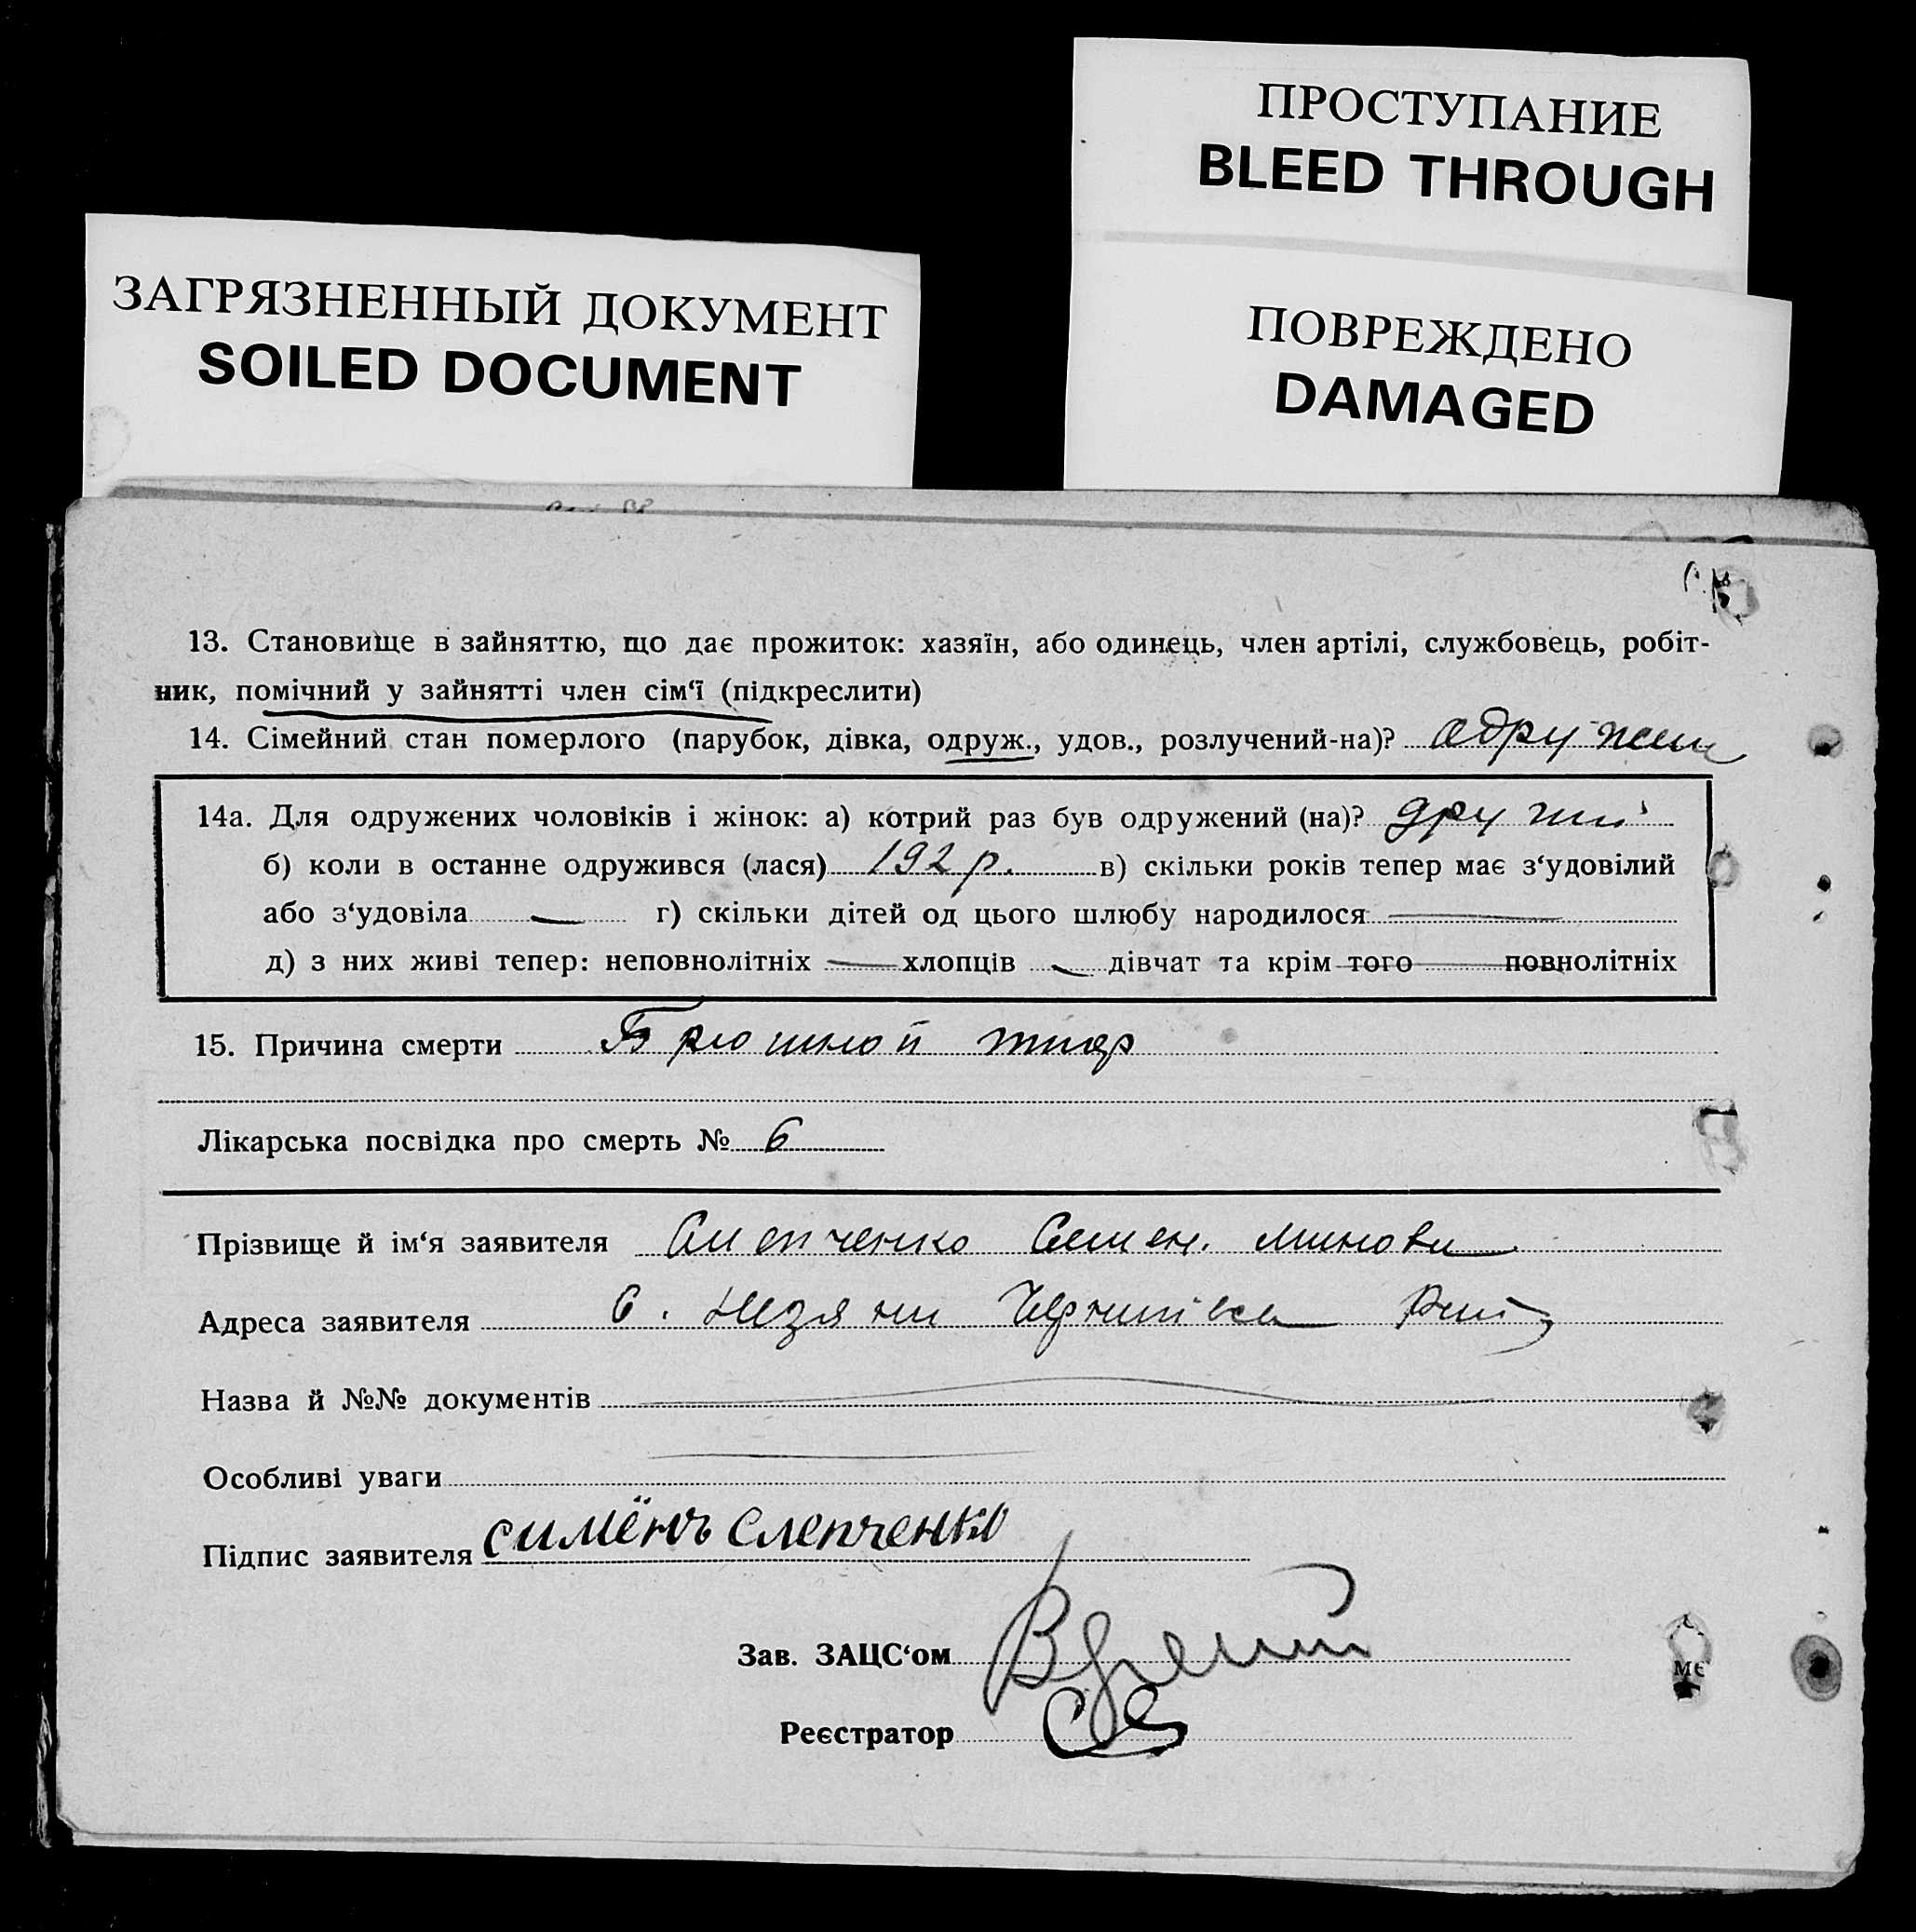 ПРОСТУПАНИЕ
BLEED THROUGH
ЗАГРЯЗНЕННЫЙ ДОКУМЕНТ
SOILED DOCUMENT
ПОВРЕЖДЕНО
DAMAGED
13. Становище в зайняттю, що дає прожиток: хазяїн, або одинець, член артілі, службовець, робіт-
ник, помічний у зайнятті член сім‘ї (підкреслити)
14. Сімейний стан померлого (парубок, дівка, одруж., удов., розлучений-на)? одружен
14а. Для одружених чоловіків і жінок: а) котрий раз був одружений (на)? другий
б) коли в останне одружився (лася) 192 р. в) скільки років тепер має з‘удовілий
або з‘удовіла — г) скільки дітей од цього шлюбу народилося —
д) з них живі тепер: неповнолітніх — хлопців — дівчат та крім того — повнолітніх
15. Причина смерти Брюшной тиф
Лікарська посвідка про смерть № 6
Прізвище й ім‘я заявителя Слепченко Семен.
Адреса заявителя с.
Назва й №№ документів —
Особливі уваги —
Підпис заявителя симёнъ слепченко
Зав. ЗАЦС‘ом
Реєстратор